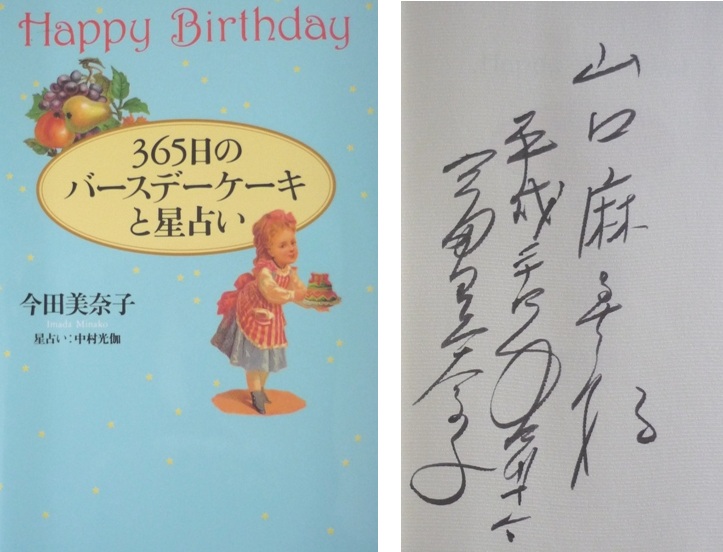 Happy Birthday
365日の
バースデーケーキ
と星占い
今田美奈子
Imada Minako
星占い：中村光伽
山口麻
平成二
今田美奈子